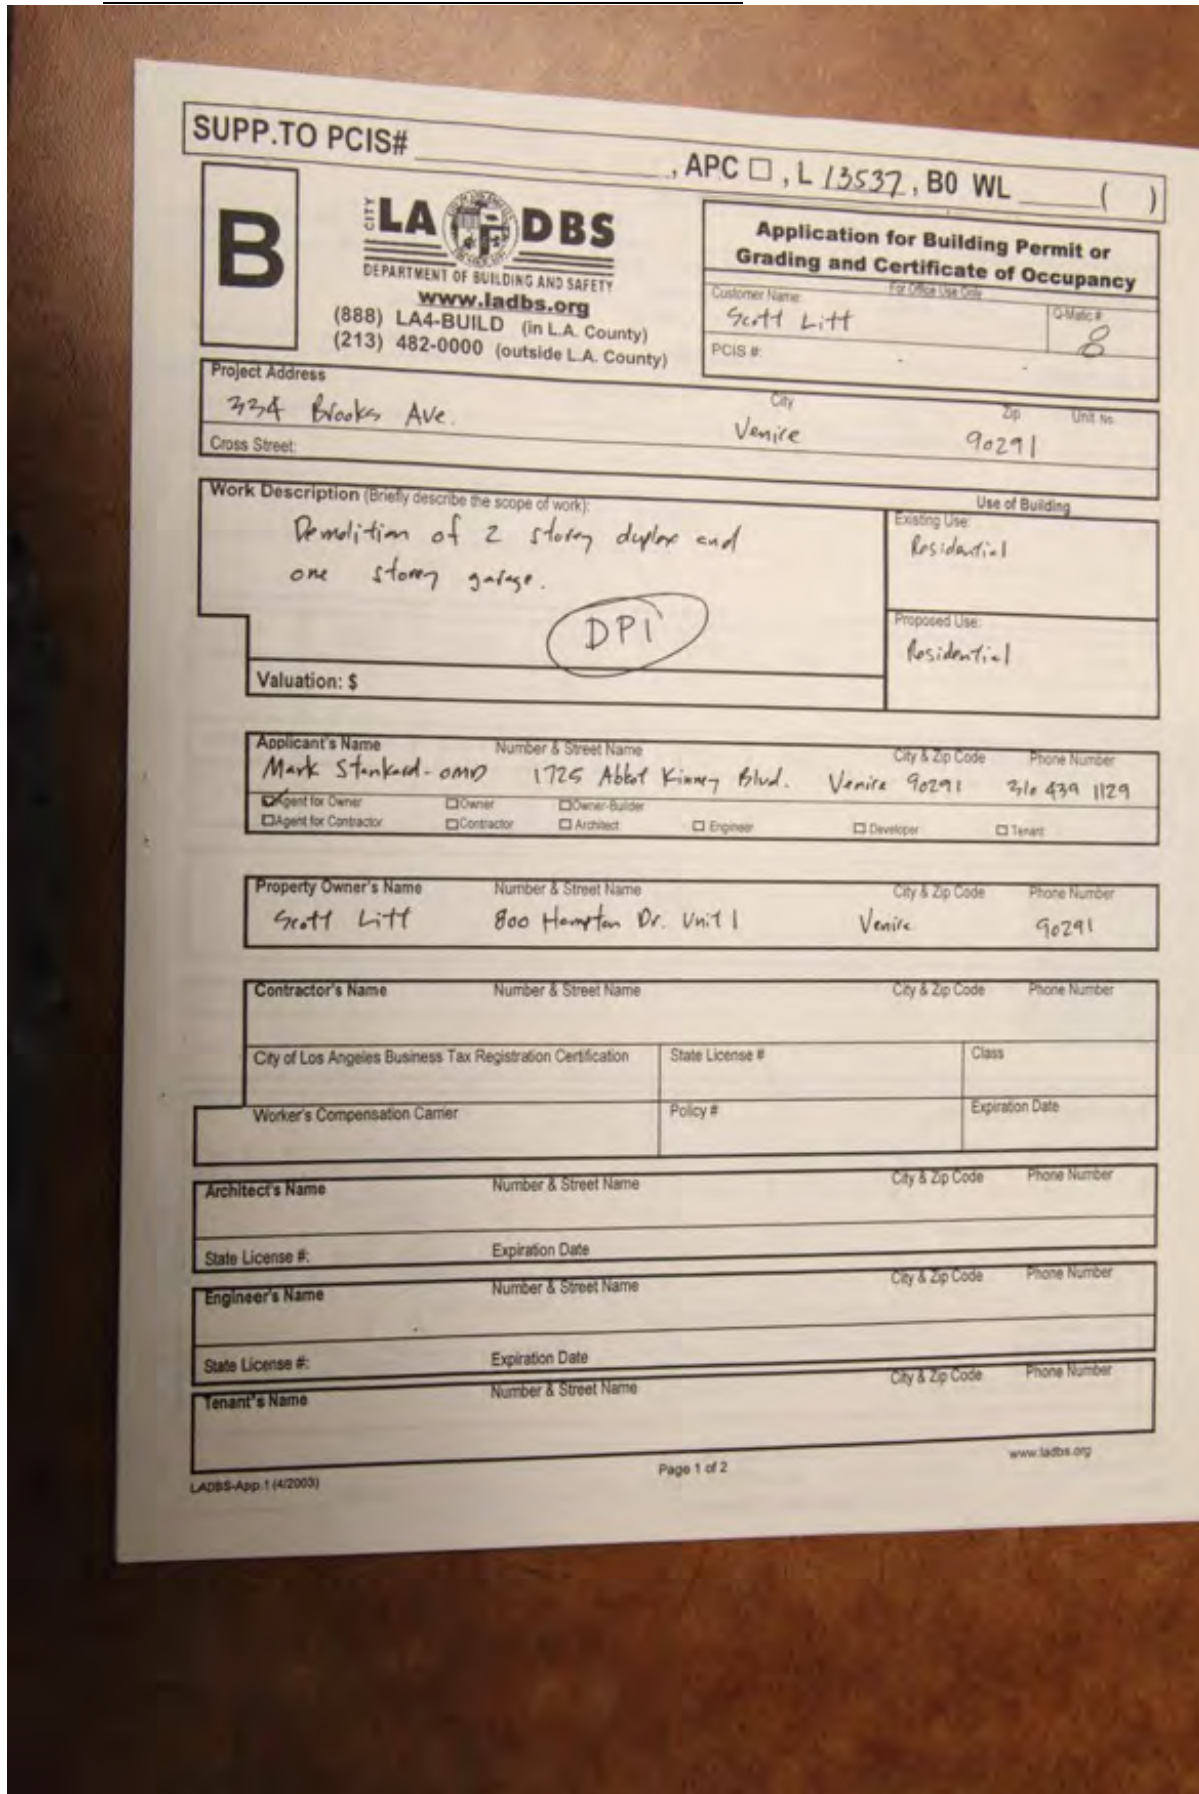 SUPP.TO PCIS# , APC ☐ , L 13537, B0 WL ( )
B
CITY LA DBS
DEPARTMENT OF BUILDING AND SAFETY
www.ladbs.org
(888) LA4-BUILD (in L.A. County)
(213) 482-0000 (outside L.A. County)
Application for Building Permit or
Grading and Certificate of Occupancy
For Office Use Only
Customer Name: Q-Matic #
Scott Litt 8
PCIS #:
Project Address City Zip Unit No.
334 Brooks Ave. Venice 90291
Cross Street:
Work Description (Briefly describe the scope of work):
Demolition of 2 storey duplex and
one storey garage.
DPI
Valuation: $
Use of Building
Existing Use:
Residential
Proposed Use:
Residential
Applicant's Name Number & Street Name City & Zip Code Phone Number
Mark Stankard-OMD 1725 Abbot Kinney Blvd. Venice 90291 310 439 1129
☑Agent for Owner ☐Owner ☐Owner-Builder
☐Agent for Contractor ☐Contractor ☐Architect ☐Engineer ☐Developer ☐Tenant
Property Owner's Name Number & Street Name City & Zip Code Phone Number
Scott Litt 800 Hampton Dr. Unit 1 Venice 90291
Contractor's Name Number & Street Name City & Zip Code Phone Number
City of Los Angeles Business Tax Registration Certification State License # Class
Worker's Compensation Carrier Policy # Expiration Date
Architect's Name Number & Street Name City & Zip Code Phone Number
State License #: Expiration Date
Engineer's Name Number & Street Name City & Zip Code Phone Number
State License #: Expiration Date
Tenant's Name Number & Street Name City & Zip Code Phone Number
LADBS-App.1 (4/2003) Page 1 of 2 www.ladbs.org